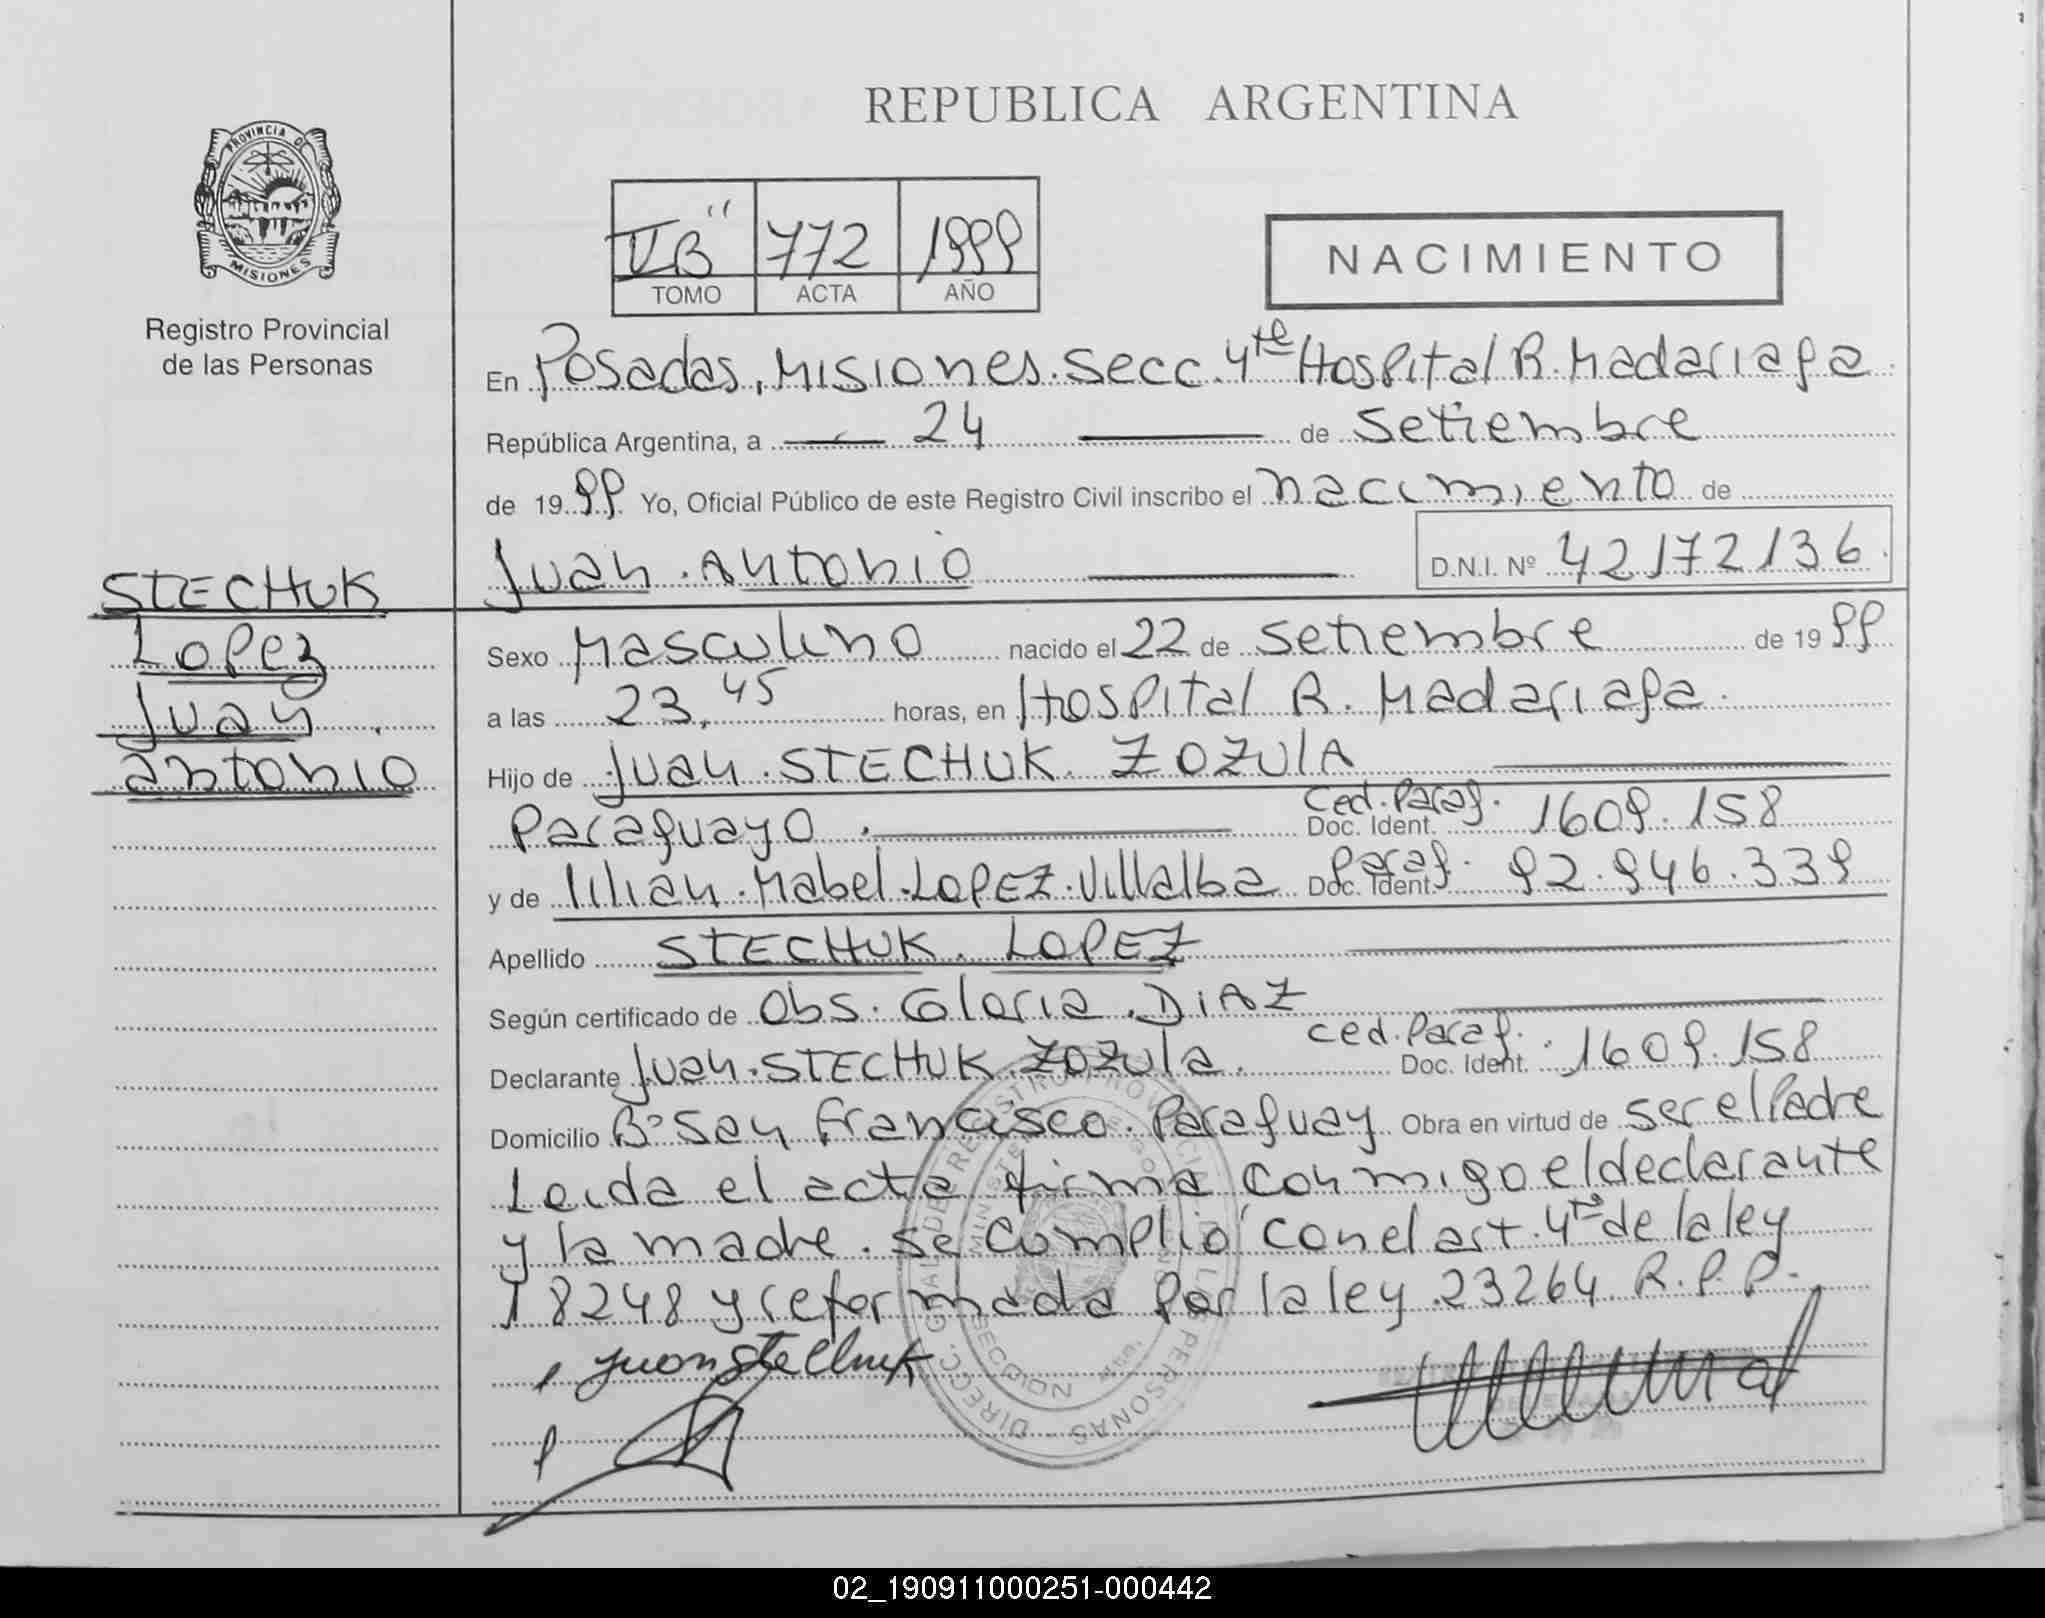 REPUBLICA ARGENTINA
PROVINCIA DE
MISIONES
Registro Provincial
de las Personas
772 1999
TOMO ACTA AÑO
NACIMIENTO
En Posadas, Misiones. Secc. 4te Hospital R. Madariaga
República Argentina, a 24 de Setiembre
de 1999 Yo, Oficial Público de este Registro Civil inscribo el nacimiento de
Juan Antonio D.N.I. Nº 42172136
STECHUK
Lopez
Juan
antonio
Sexo Masculino nacido el 22 de Setiembre de 1999
a las 23,45 horas, en Hospital R. Madariaga
Hijo de Juan STECHUK ZOZULA
Paraguayo Ced. Parag. Doc. Ident. 1609.158
y de lilian Mabel LOPEZ Villalba Parag. Doc. Ident. 92.946.339
Apellido STECHUK LOPEZ
Según certificado de Obs. Gloria DIAZ
Declarante Juan STECHUK ZOZULA Ced. Parag. Doc. Ident. 1609.158
Domicilio Bº San Francisco. Paraguay Obra en virtud de ser el Padre
Leida el acta firma conmigo el declarante
y la madre. se cumplió con el art. 4to de la ley
18248 y reformada por la ley 23264 R.P.P.
Juan Stechuk
02_190911000251-000442